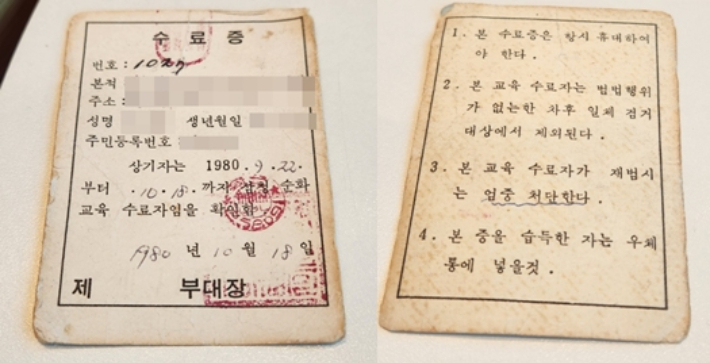 수 료 증
번호 : 1027
본적
주소 :
성명 생년월일
주민등록번호
상기자는 1980 . 9 . 22 .
부터 . 10 . 18 . 까지 순화
교육 수료자임을 확인함 .
1980 년 10 월 18 일
제 부대장
1 . 본 수료증은 항시 휴대하여
야 한다 .
2 . 본 교육 수료자는 범법행위
가 없는한 차후 일체 검거
대상에서 제외된다 .
3 . 본 교육 수료자가 재범시
는 엄중 처단한다 .
4 . 본 증을 습득한 자는 우체
통에 넣을것 .